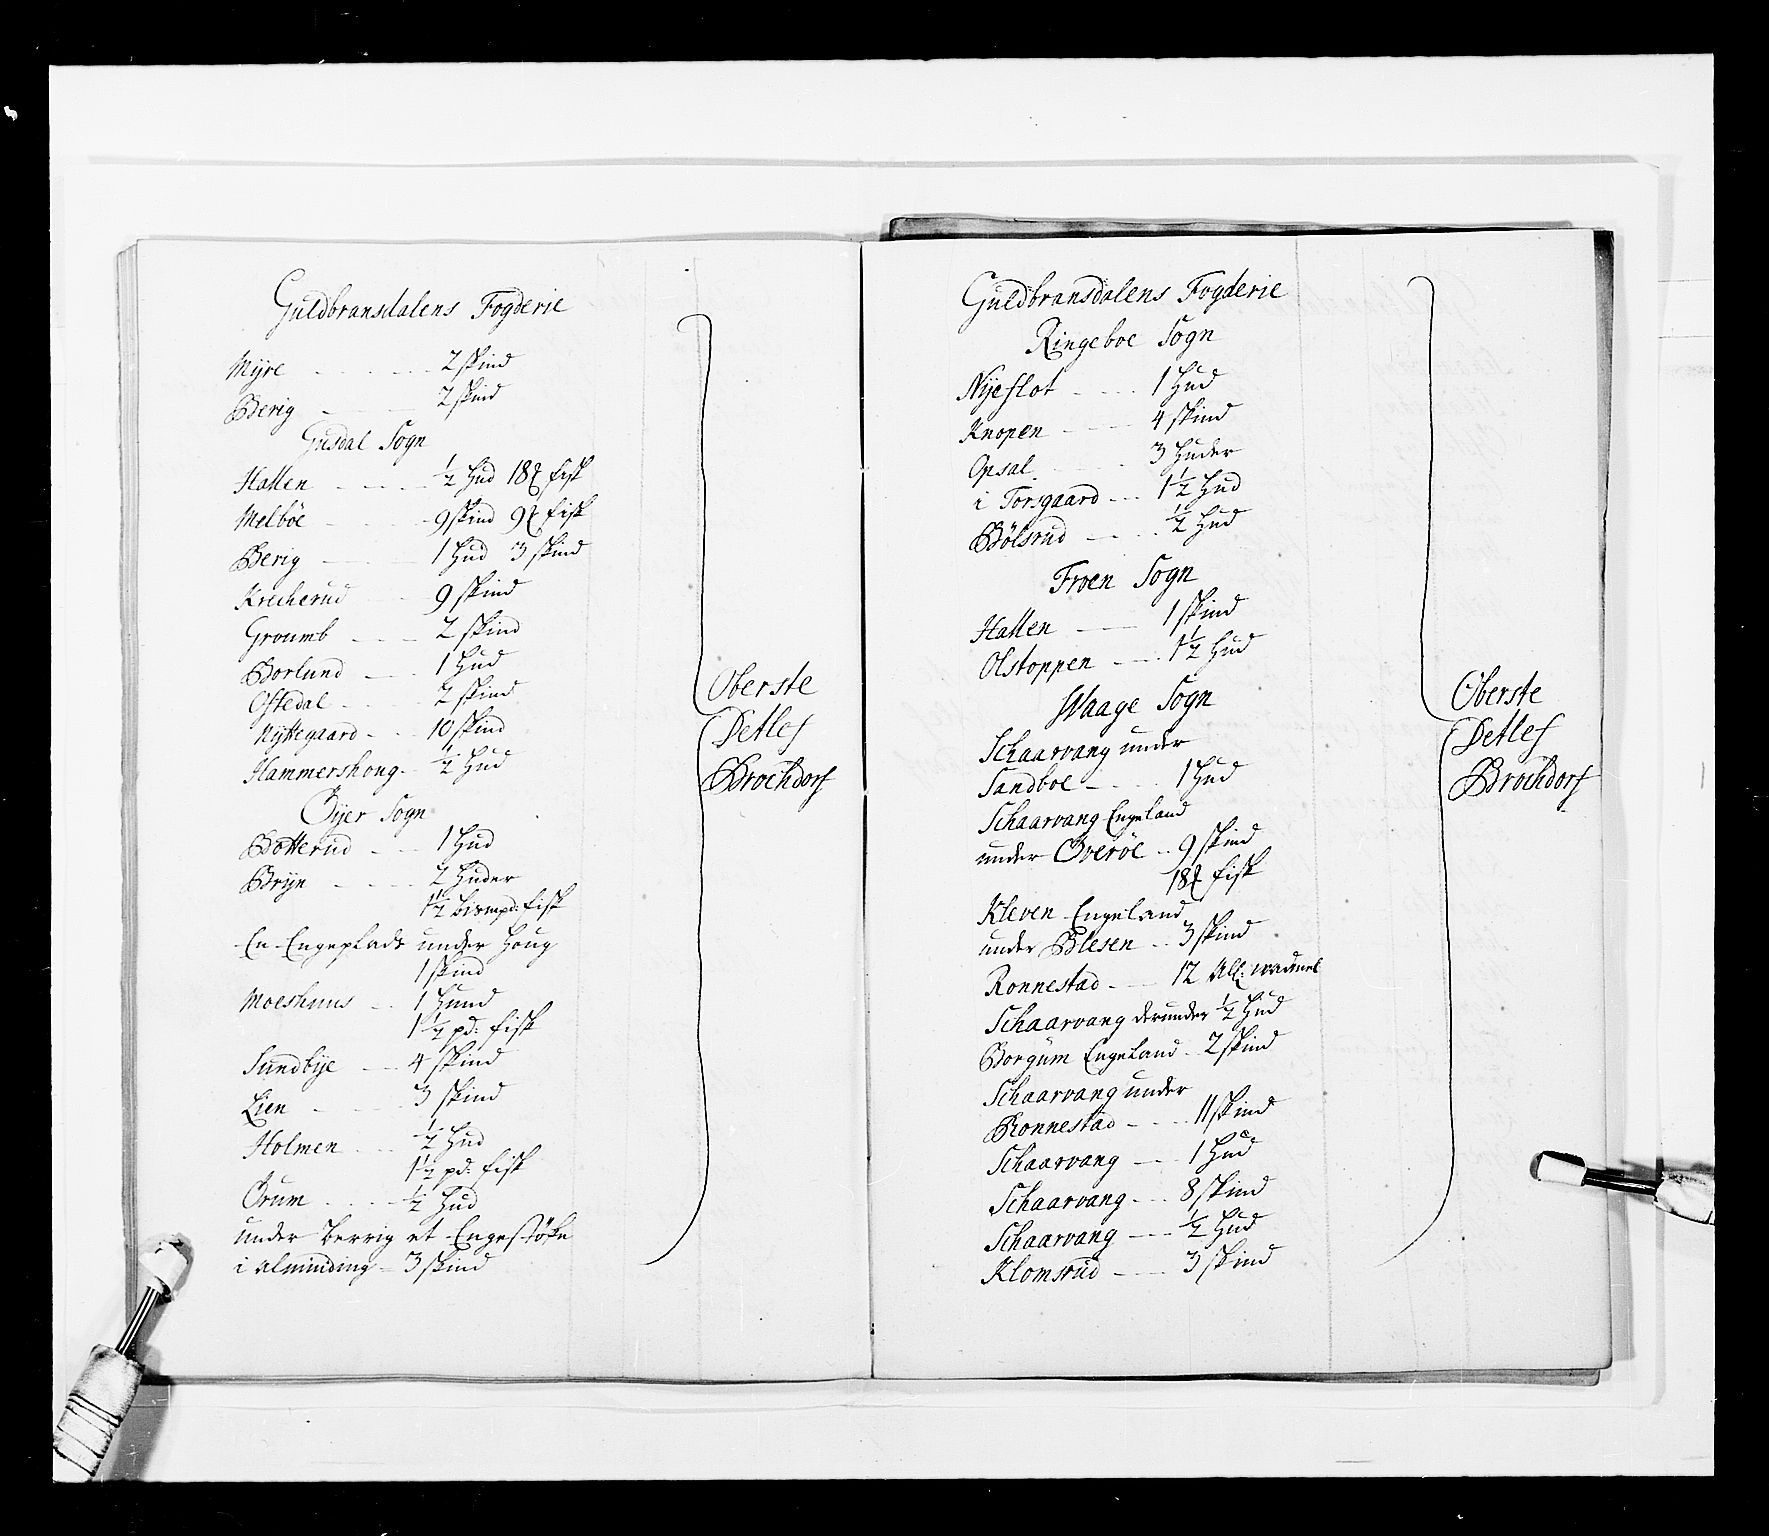 Guldbransdalens Fogderie
Mÿre 2 skind
Berig 2 skind
Gusdal Sogn
Hatten ½ Hud 18 ℔ fisk
Melböe 9 skind 9 ℔ fisk
Berig 1 Hud 3 skind
Krecherud 9 skind
Groumb 2 skind
Borlund 1 Hud
Ofstedal 2 skind
Nÿttegaard 10 skind
Hammershoug ½ Hud
Öÿer Sogn
Botterud 1 Hud
Brÿn 2 Huder
1½ bismpd: fisk
En Engeplads under Houg
1 skind
Moeshuus 1 Hund
1½ pd: fisk
Sundbÿe 4 skind
Lien 3 skind
Holmen ½ Hud
1½ pd: fisk
Örum ½ Hud
under Berrig et Engestöke
i alminding 3 skind
Oberste
Detlef
Brochdorf
Guldbransdalens Fogderie
Ringeboe Sogn
Nÿeslot 1 Hud
Knopen 4 skind
Opsal 3 Huder
i Torsgaard 1½ Hud
Bölsrud ½ Hud
Froen Sogn
Hatten 1 skind
Olstoppen 1½ Hud
Waage Sogn
Schaarvang under
Sandboe 1 Hud
Schaarvang Engeland
under Överöe 9 skind
18 ℔ fisk
Kleven Engeland
under Blesen 3 skind
Ronnestad 12 All: wadmel
Schaarvang derunder ½ Hud
Borgum Engeland 2 skind
Schaarvang under
Ronnestad 11 skind
Schaarvang 1 Hud
Schaarvang 8 skind
Schaarvang ½ Hud
Klomsrud 3 skind
Oberste
Detlef
Brochdorf